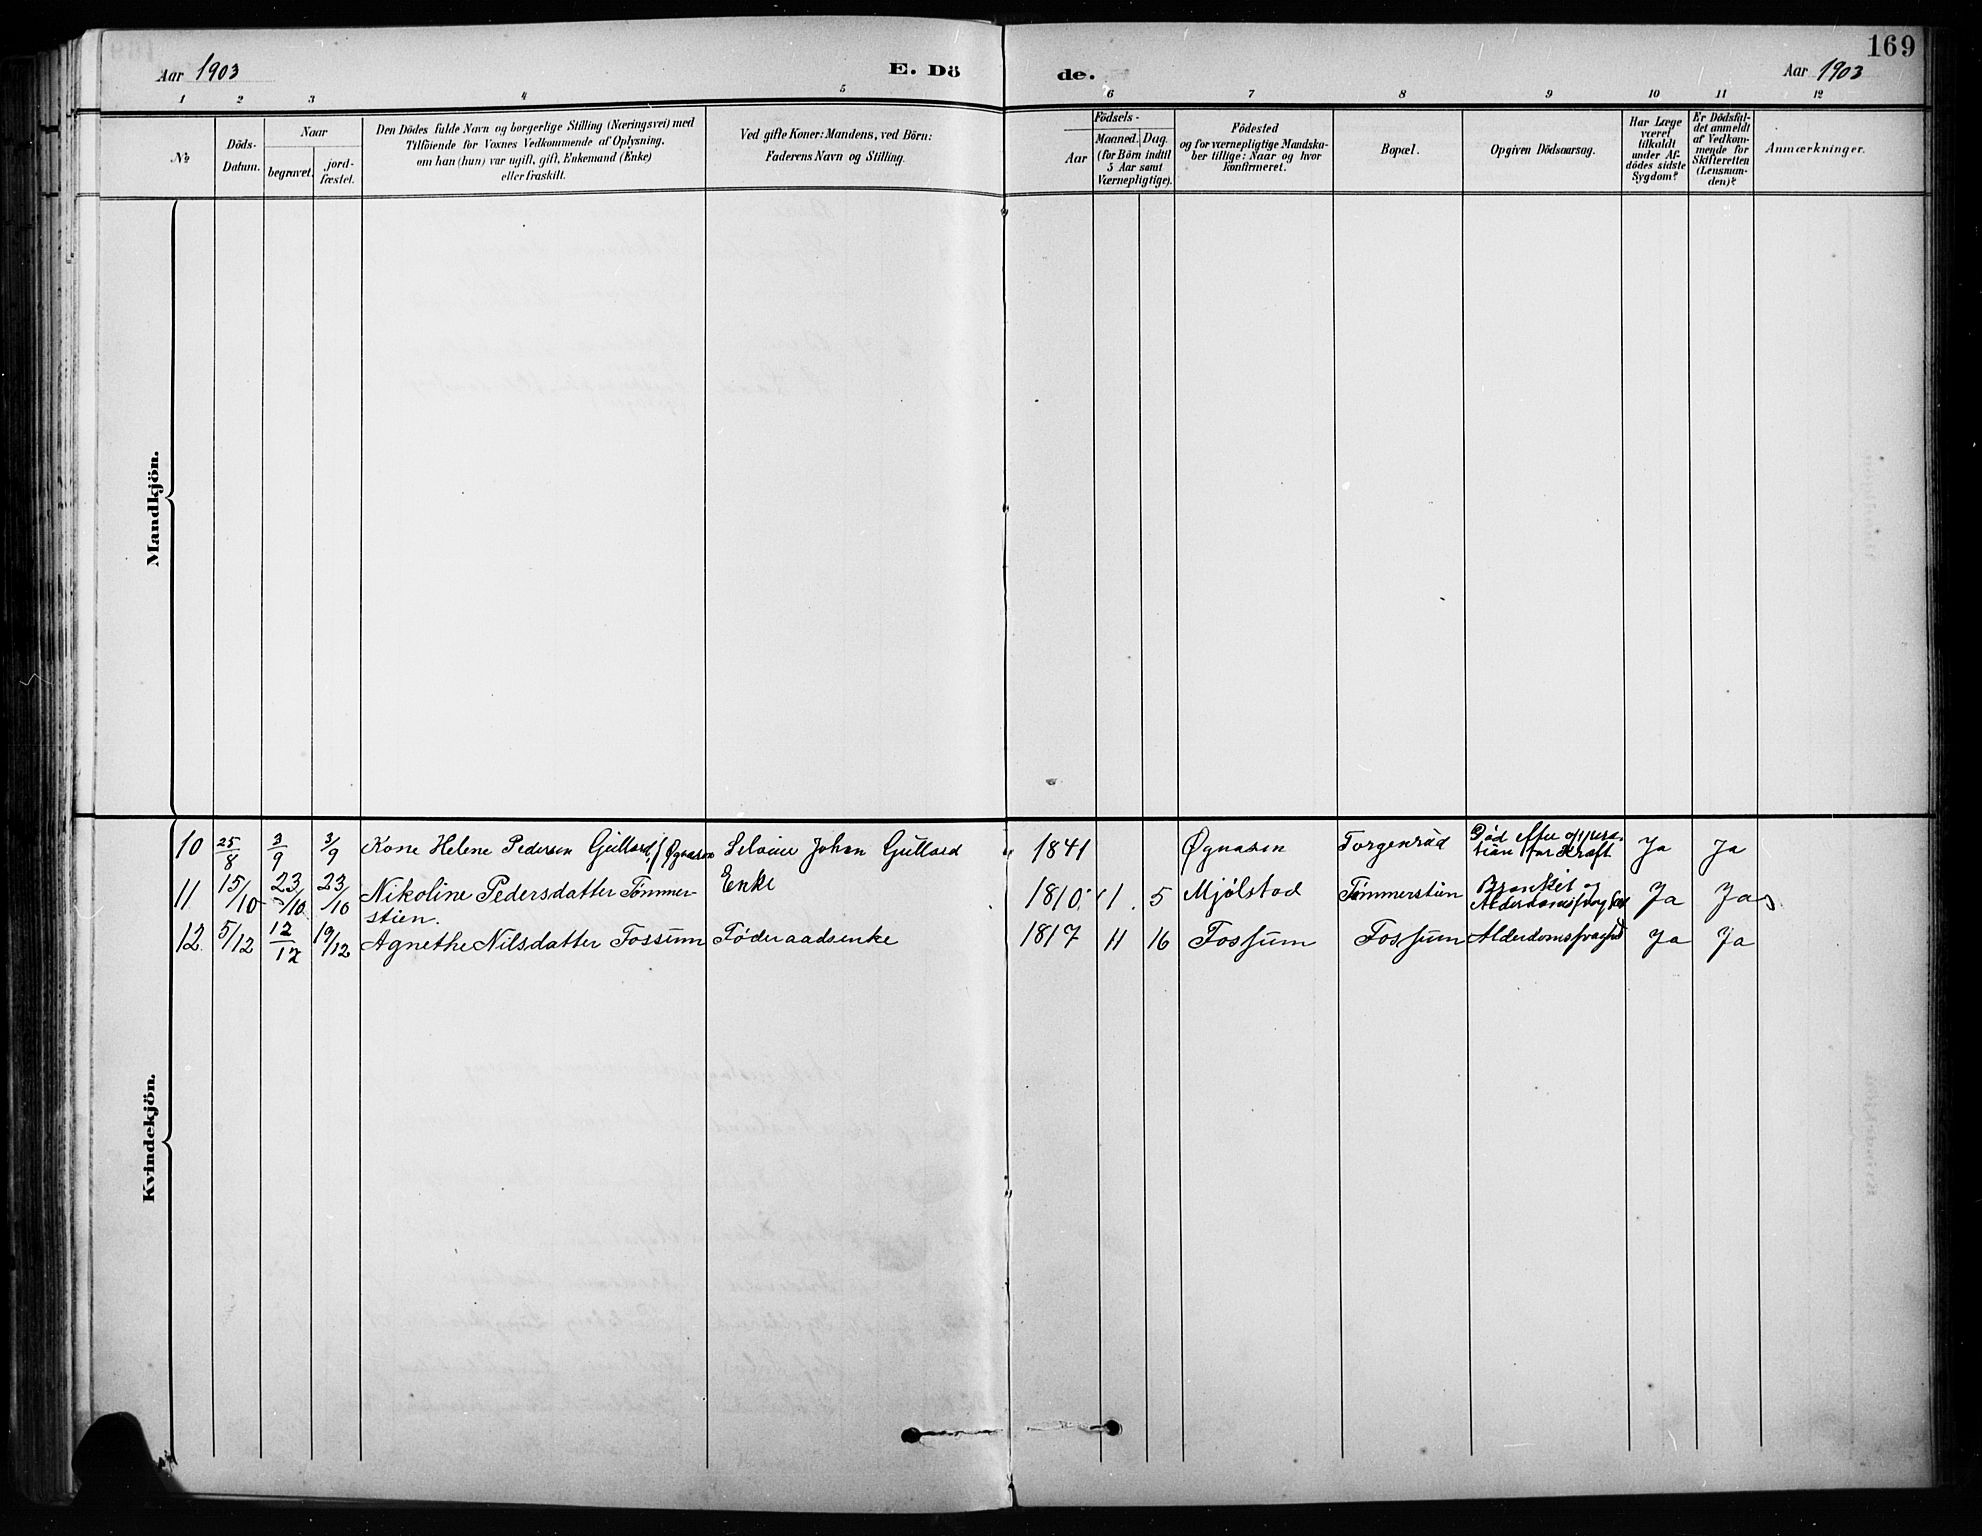 169
Aar 1903
E. Dö
de.
Aar 1903
1 2 3 4 5 6 7 8 9 10 11 12
№
Döds-
Datum.
Naar
begravet.
jord-
fæstet.
Den Dödes fulde Navn og borgerlige Stilling (Næringsvei) med
Tilföiende for Voxnes Vedkommende af Oplysning,
om han (hun) var ugift, gift, Enkemand (Enke)
eller fraskilt.
Ved gifte Koner: Mandens, ved Börn:
Faderens Navn og Stilling.
Födsels-
Aar
Maaned.
Dag.
(for Börn indtil
5 Aar samt
Værnepligtige).
Födested
og for værnepligtige Mandska-
ber tillige: Naar og hvor
konfirmeret.
Bopæl.
Opgiven Dödsaarsag.
Har Læge
været
tilkaldt
under Af-
dödes sidste
Sygdom?
Er Dödsfal-
det anmeldt
af Vedkom-
mende for
Skifteretten
(Lensman-
den)?
Anmærkninger.
Mandkjön.
Kvindekjön.
10 25/8 3/9 3/9 Kone Helene Pedersen Gullord, f Øgnasen Seloier Johan Gullord 1841 Øgnasen Torgenrud Död efter opera-
tion for Kræft Ja Ja
11 15/10 23/10 23/10 Nikoline Pedersdatter Tømmer-
stien. Enke 1810 11 5 Mjølstad Tømmerstien Bronkit og
Alderdomssvaghed Ja Ja
12. 5/12 12/12 19/12 Agnethe Nilsdatter Fossum Føderaadsenke 1817 11 16 Fossum Fossum Alderdomssvaghed Ja Ja